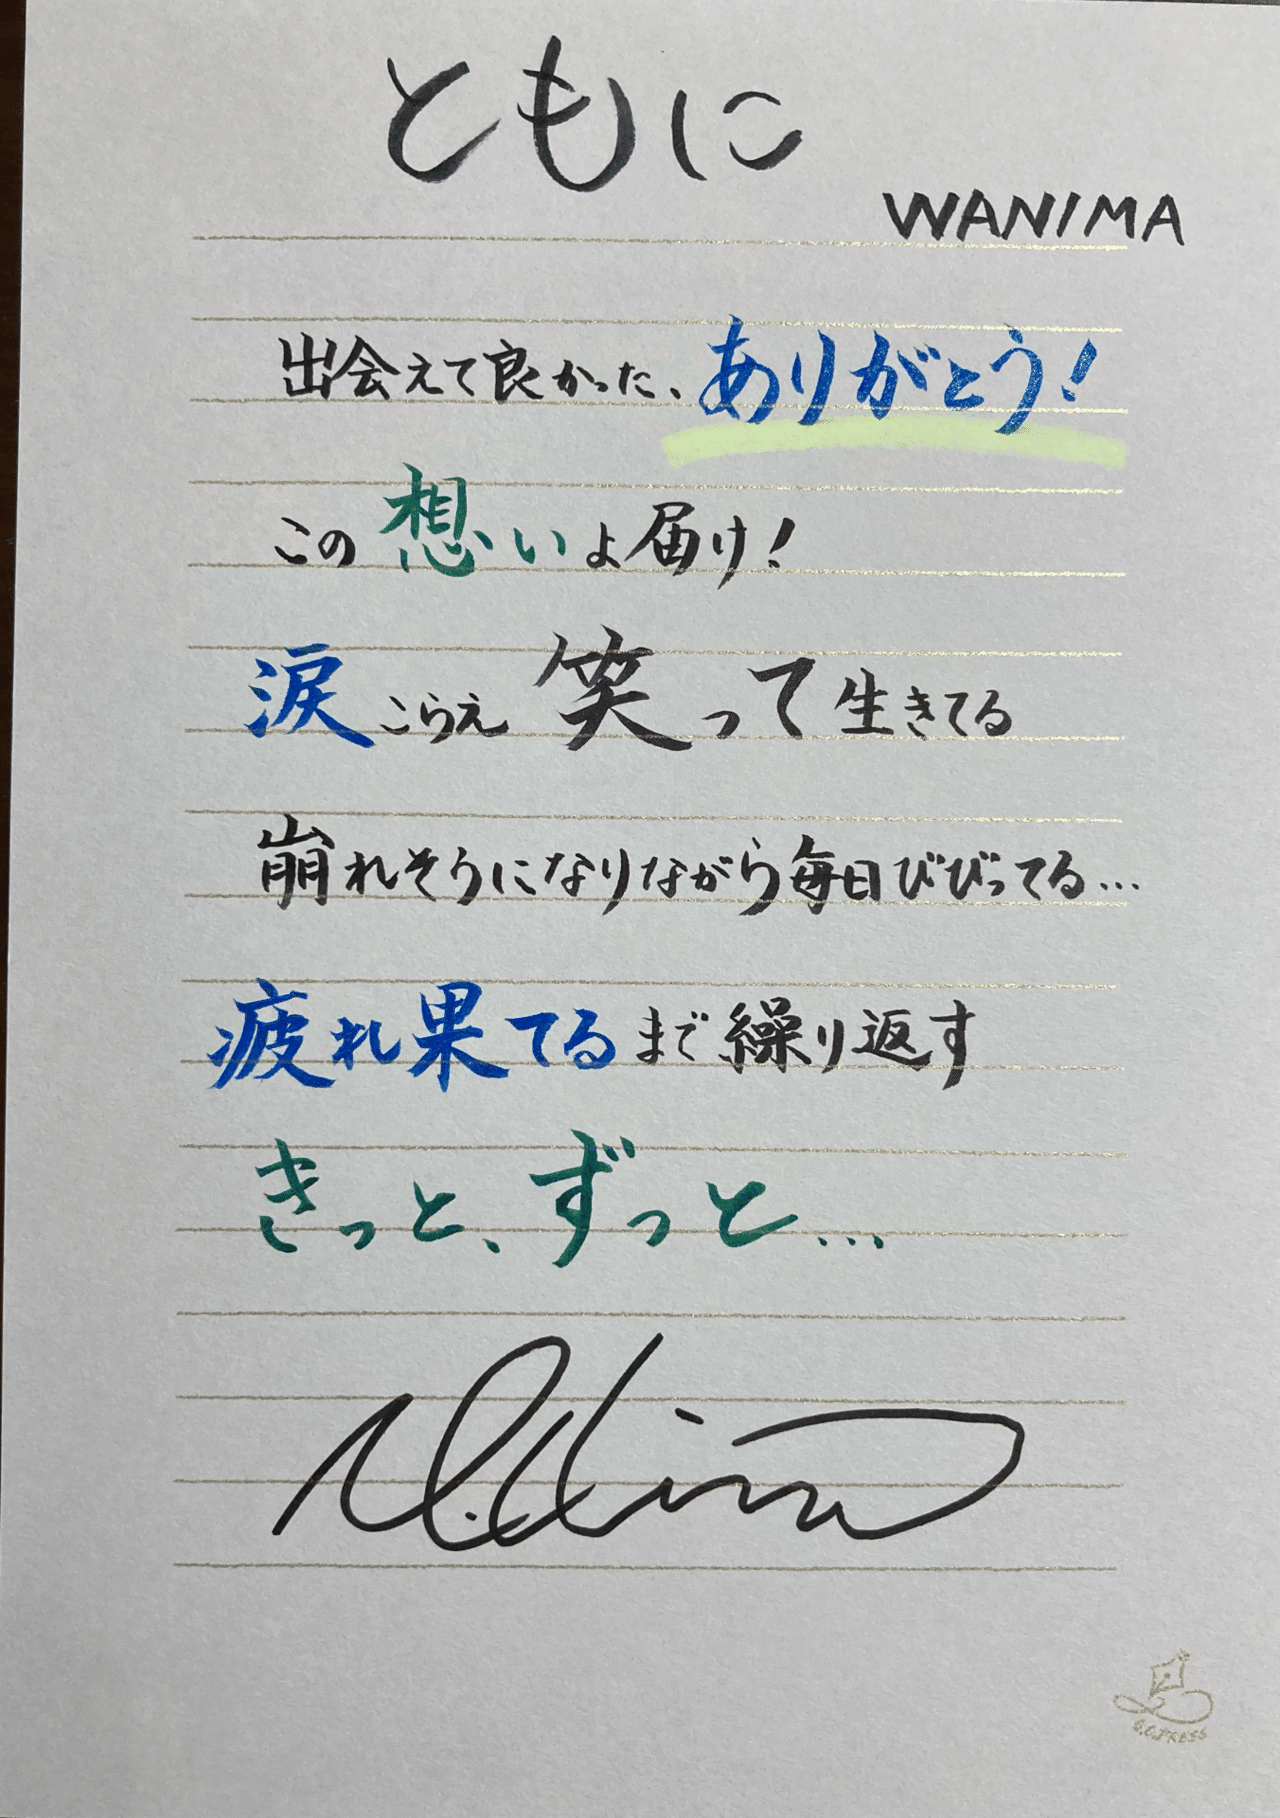 ともに
WANIMA
出会えて良かった、ありがとう!
この想いよ届け!
涙こらえ笑って生きてる
崩れそうになりながら毎日びびってる…
疲れ果てるまで繰り返す
きっと、ずっと…